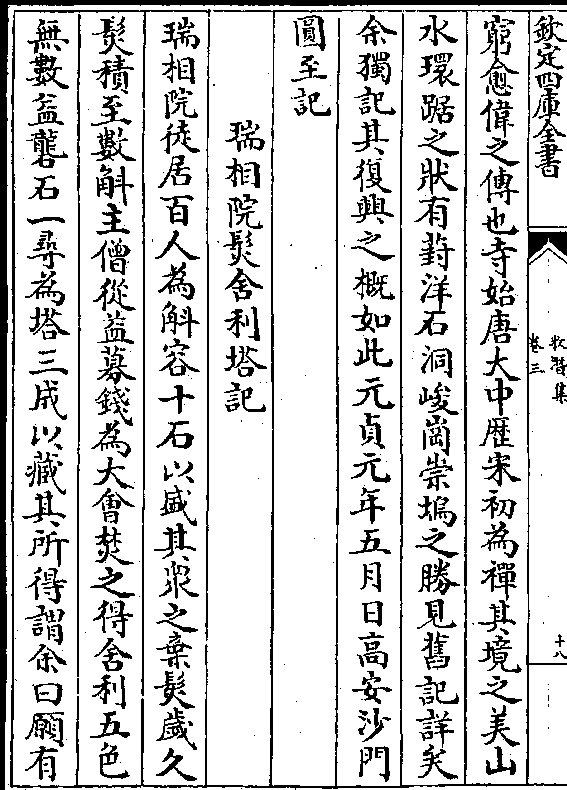 欽定四庫全書
牧潛集
卷三
十八
窮愈偉之傳也寺始唐大中歷宋初為禪其境之美山
水環踞之狀有葑洋石洞峻崗崇塢之勝見舊記詳矣
余獨記其復興之概如此元貞元年五月日高安沙門
圓至記
瑞相院髮舍利塔記
瑞相院徒居百人為斛容十石以盛其衆之棄髮歲久
髮積至數斛主僧從益募錢為大會焚之得舍利五色
無數益礱石一尋為塔三成以藏其所得謂余曰願有